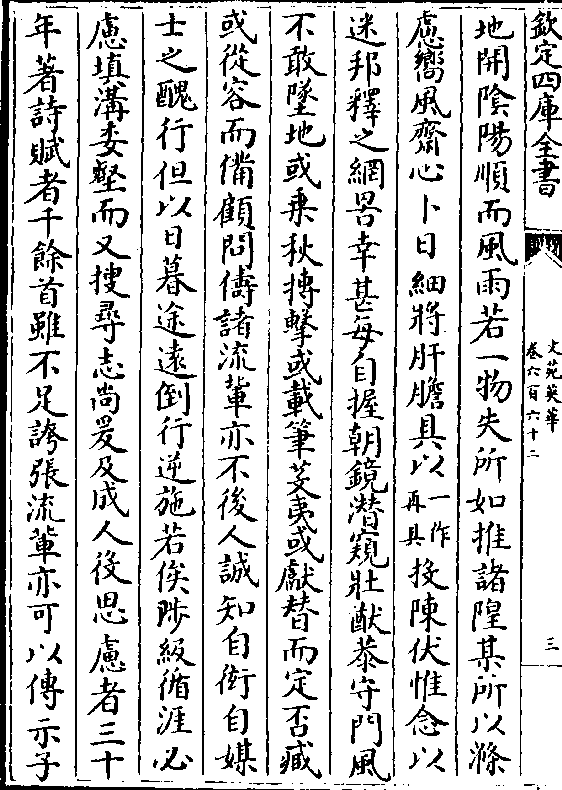 欽定四庫全書
文苑英華
卷六百六十二
三
地開陰陽順而風雨若一物失所如推諸隍某所以滌
慮嚮風齋心卜日細將肝膽具以一作再具投陳伏惟念以
迷邦釋之網罟幸甚每自握朝鏡潜窺壯猷恭守門風
不敢墜地或乗秋摶擊或載筆芟夷或獻替而定否臧
或從容而備顧問儔諸流軰亦不後人誠知自衒自媒
士之醜行但以日暮途遠倒行逆施若俟陟級循涯必
慮填溝委壑而又搜尋志尚爰及成人役思慮者三十
年著詩賦者千餘首雖不足誇張流軰亦可以傳示子